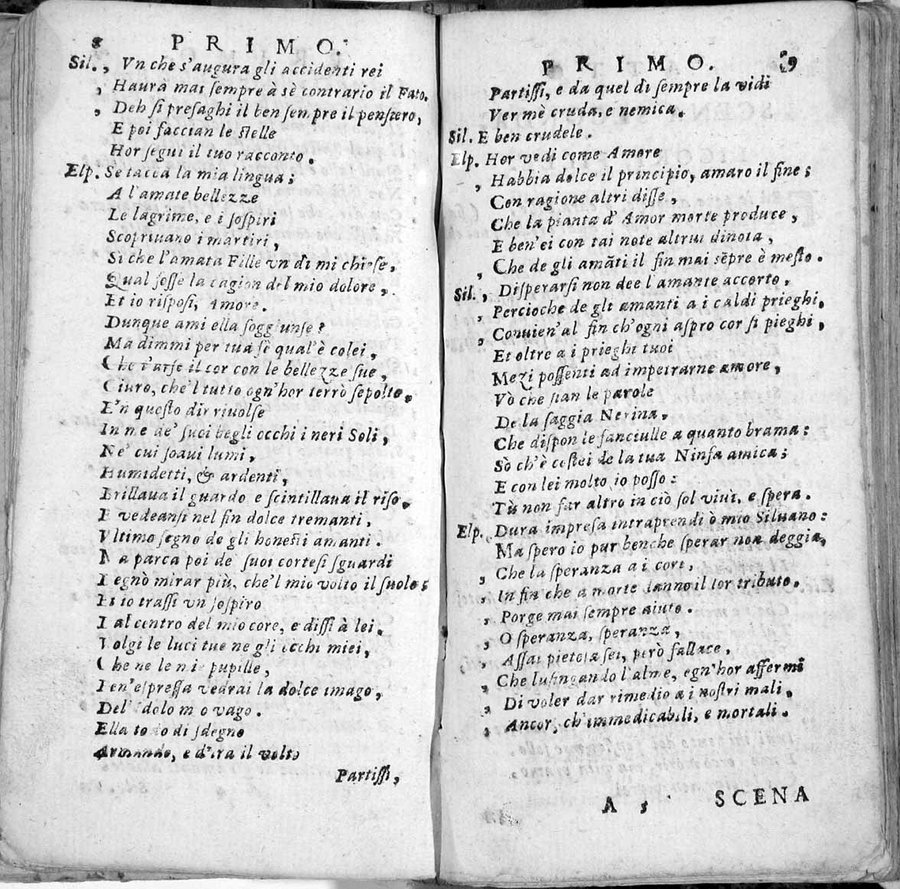 8 PRIMO.
Sil. , Vn che s'augura gli accidenti rei
, Haurà mai sempre à sè contrario il Fato.
, Deh si presaghi il ben sempre il pensiero,
E poi faccian le stelle
Hor segui il tuo racconto.
Elp. Se tacea la mia lingua;
A l'amate bellezze
Le lagrime, e i sospiri
Scopriuano i martiri,
Si che l'amata Fille vn dì mi chiese,
Qual fosse la cagion del mio dolore,
Et io risposi, Amore.
Dunque ami ella soggiunse?
Ma dimmi per tua fè qual'è colei,
Che t'arse il cor con le bellezze sue,
Giuro, che'l tutto ogn'hor terrò sepolto.
E'n questo dir riuolse
In me de' suoi begli occhi i neri Soli,
Ne' cui soaui lumi,
Humidetti, & ardenti,
Brillaua il guardo e scintillaua il riso.
E vedeansi nel fin dolce tremanti,
Vltimo segno de gli honesti amanti.
Ma parca poi de' suoi cortesi sguardi
Degnò mirar più, che'l mio volto il suolo;
Et io trassi vn sospiro
Dal centro del mio core, e dissi à lei,
Volgi le luci tue ne gli occhi miei,
Che ne le mie pupille,
Ben'espressa vedrai la dolce imago,
Del' idolo mio vago.
Ella tosto di sdegno
Armando, e d'ira il volto
Partissi,
PRIMO. 9
Partissi, e da quel dì sempre la vidi
Ver mè cruda, e nemica.
Sil. E ben crudele.
Elp. Hor vedi come Amore
, Habbia dolce il principio, amaro il fine;
Con ragione altri disse,
, Che la pianta d' Amor morte produce,
E ben'ei con tai note altrui dinota,
, Che de gli amāti il fin mai sēpre è mesto.
Sil. , Disperarsi non dee l'amante accorto,
, Percioche de gli amanti a i caldi prieghi,
, Conuien'al fin ch'ogni aspro cor si pieghi,
Et oltre a i prieghi tuoi
Mezi possenti ad impetrarne amore,
Vò che sian le parole
De la saggia Nerina,
Che dispon le fanciulle a quanto brama:
Sò ch'è costei de la tua Ninfa amica;
E con lei molto io posso:
Tù non far altro in ciò sol viui, e spera.
Elp. Dura impresa intraprendi ò mio Siluano:
Ma spero io pur benche sperar non deggia,
, Che la speranza a i cori,
, In fin che a morte danno il lor tributo,
, Porge mai sempre aiuto.
, O speranza, speranza,
, Assai pietosa sei, però fallace,
, Che lusingando l'alme, ogn'hor affermi
, Di voler dar rimedio a i nostri mali,
, Ancor, ch'immedicabili, e mortali.
A 5 SCENA